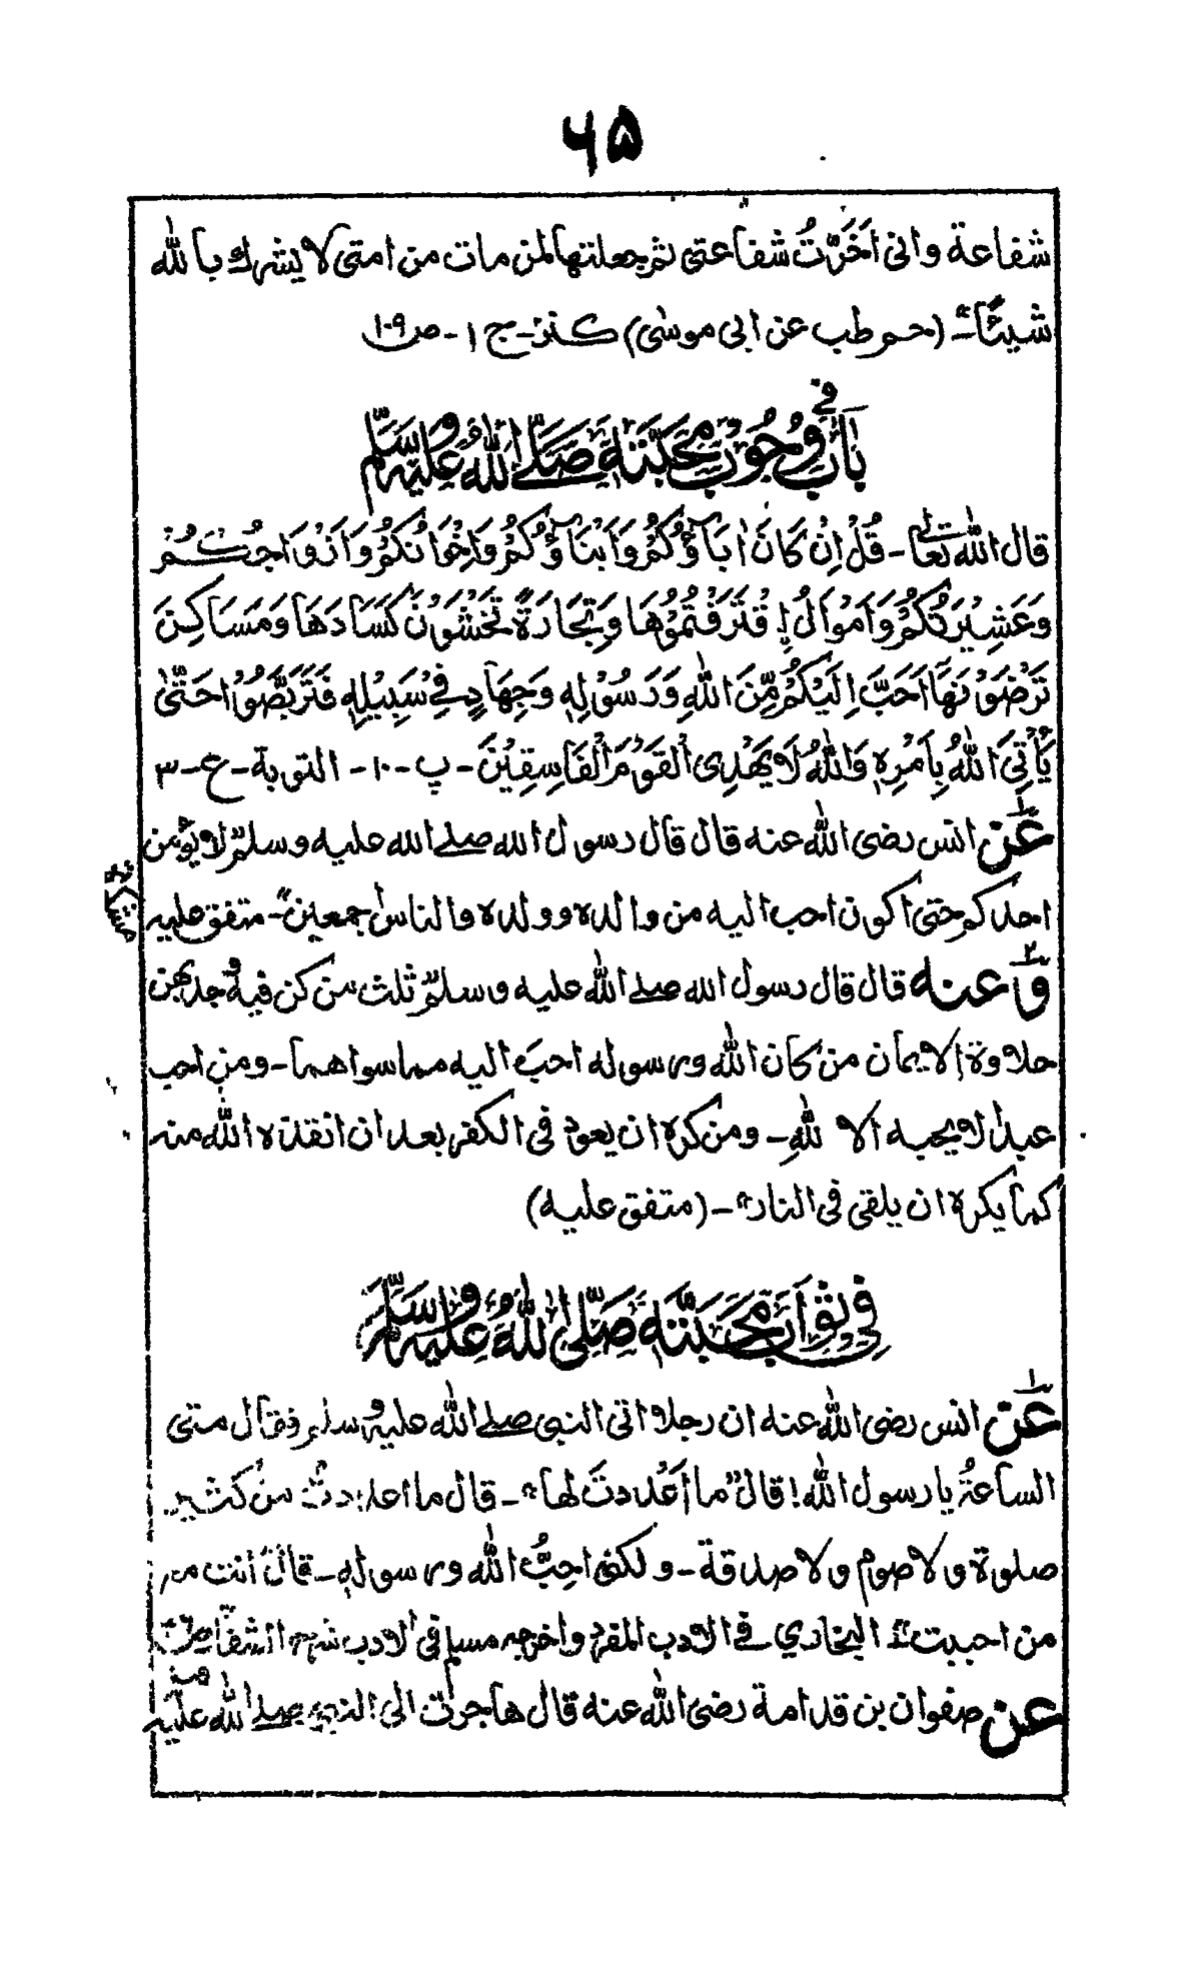 ۶۵
شفاعة وانی اَخَّرْتُ شفاعتی ثم جعلتها لمن مات من امتی لا یشرك بالله
شیئًا" - (حم طب عن ابی موسٰی) کنز- ج ۱ - ص ۱۰۹
بَابٌ فِي وُجُوْبِ مَحَبَّتِهٖ صَلَّی اللهُ عَلَیْهِ وَسَلَّمَ
قال الله تعالٰی - قُلْ اِنْ کَانَ اٰبَآؤُکُمْ وَاَبْنَآؤُکُمْ وَاِخْوَانُکُمْ وَاَزْوَاجُکُمْ
وَعَشِیْرَتُکُمْ وَاَمْوَالُ اِقْتَرَفْتُمُوْهَا وَتِجَارَةٌ تَخْشَوْنَ کَسَادَهَا وَمَسَاکِنَ
تَرْضَوْنَهَا اَحَبَّ اِلَیْکُمْ مِّنَ اللهِ وَرَسُوْلِهٖ وَجِهَادٍ فِیْ سَبِیْلِهٖ فَتَرَبَّصُوْا حَتّٰی
یَأْتِیَ اللهُ بِاَمْرِهٖ وَاللهُ لَا یَهْدِی الْقَوْمَ الْفَاسِقِیْنَ - پ - ۱۰ - التوبة - ع - ۳
۱ عَن انس رضی الله عنه قال قال رسول الله صلے الله علیه وسلم لا یؤمن
احدکم حتی اکون احب الیه من والده وولده والناس اجمعین" - متفق علیه
مشکٰوة
۲ وَعنه قال قال رسول الله صلے الله علیه وسلم ثلث من کن فیه وجد بهن
حلاوة الایمان من کان الله ورسوله احبَ الیه مما سواهما - ومن احب
عبدا لا یحبه الا للهِ - ومن کره ان یعود فی الکفر بعد ان انقذه الله منه
کما یکره ان یلقی فی النار" - (متفق علیه)
فِی ثَوَابِ مَحَبَّتِهٖ صَلَّی اللهُ عَلَیْهِ وَسَلَّمَ
۱ عَن انس رضی الله عنه ان رجلا اتی النبی صلے الله علیه وسلم فقال متی
الساعةُ یا رسول الله! قال "ما اَعْدَدتَ لها" - قال ما اعددتُ من کثیر
صلوة ولا صوم ولا صدقة - ولکنی احِبُّ الله ورسولهٖ - قال "انت مع
من احببت" البخاري فی الادب المفرد واخرجه مسلم فی الادب شرح الشفا
عن صفوان بن قدامة رضی الله عنه قال هاجرت الی النبی صلے الله علیه